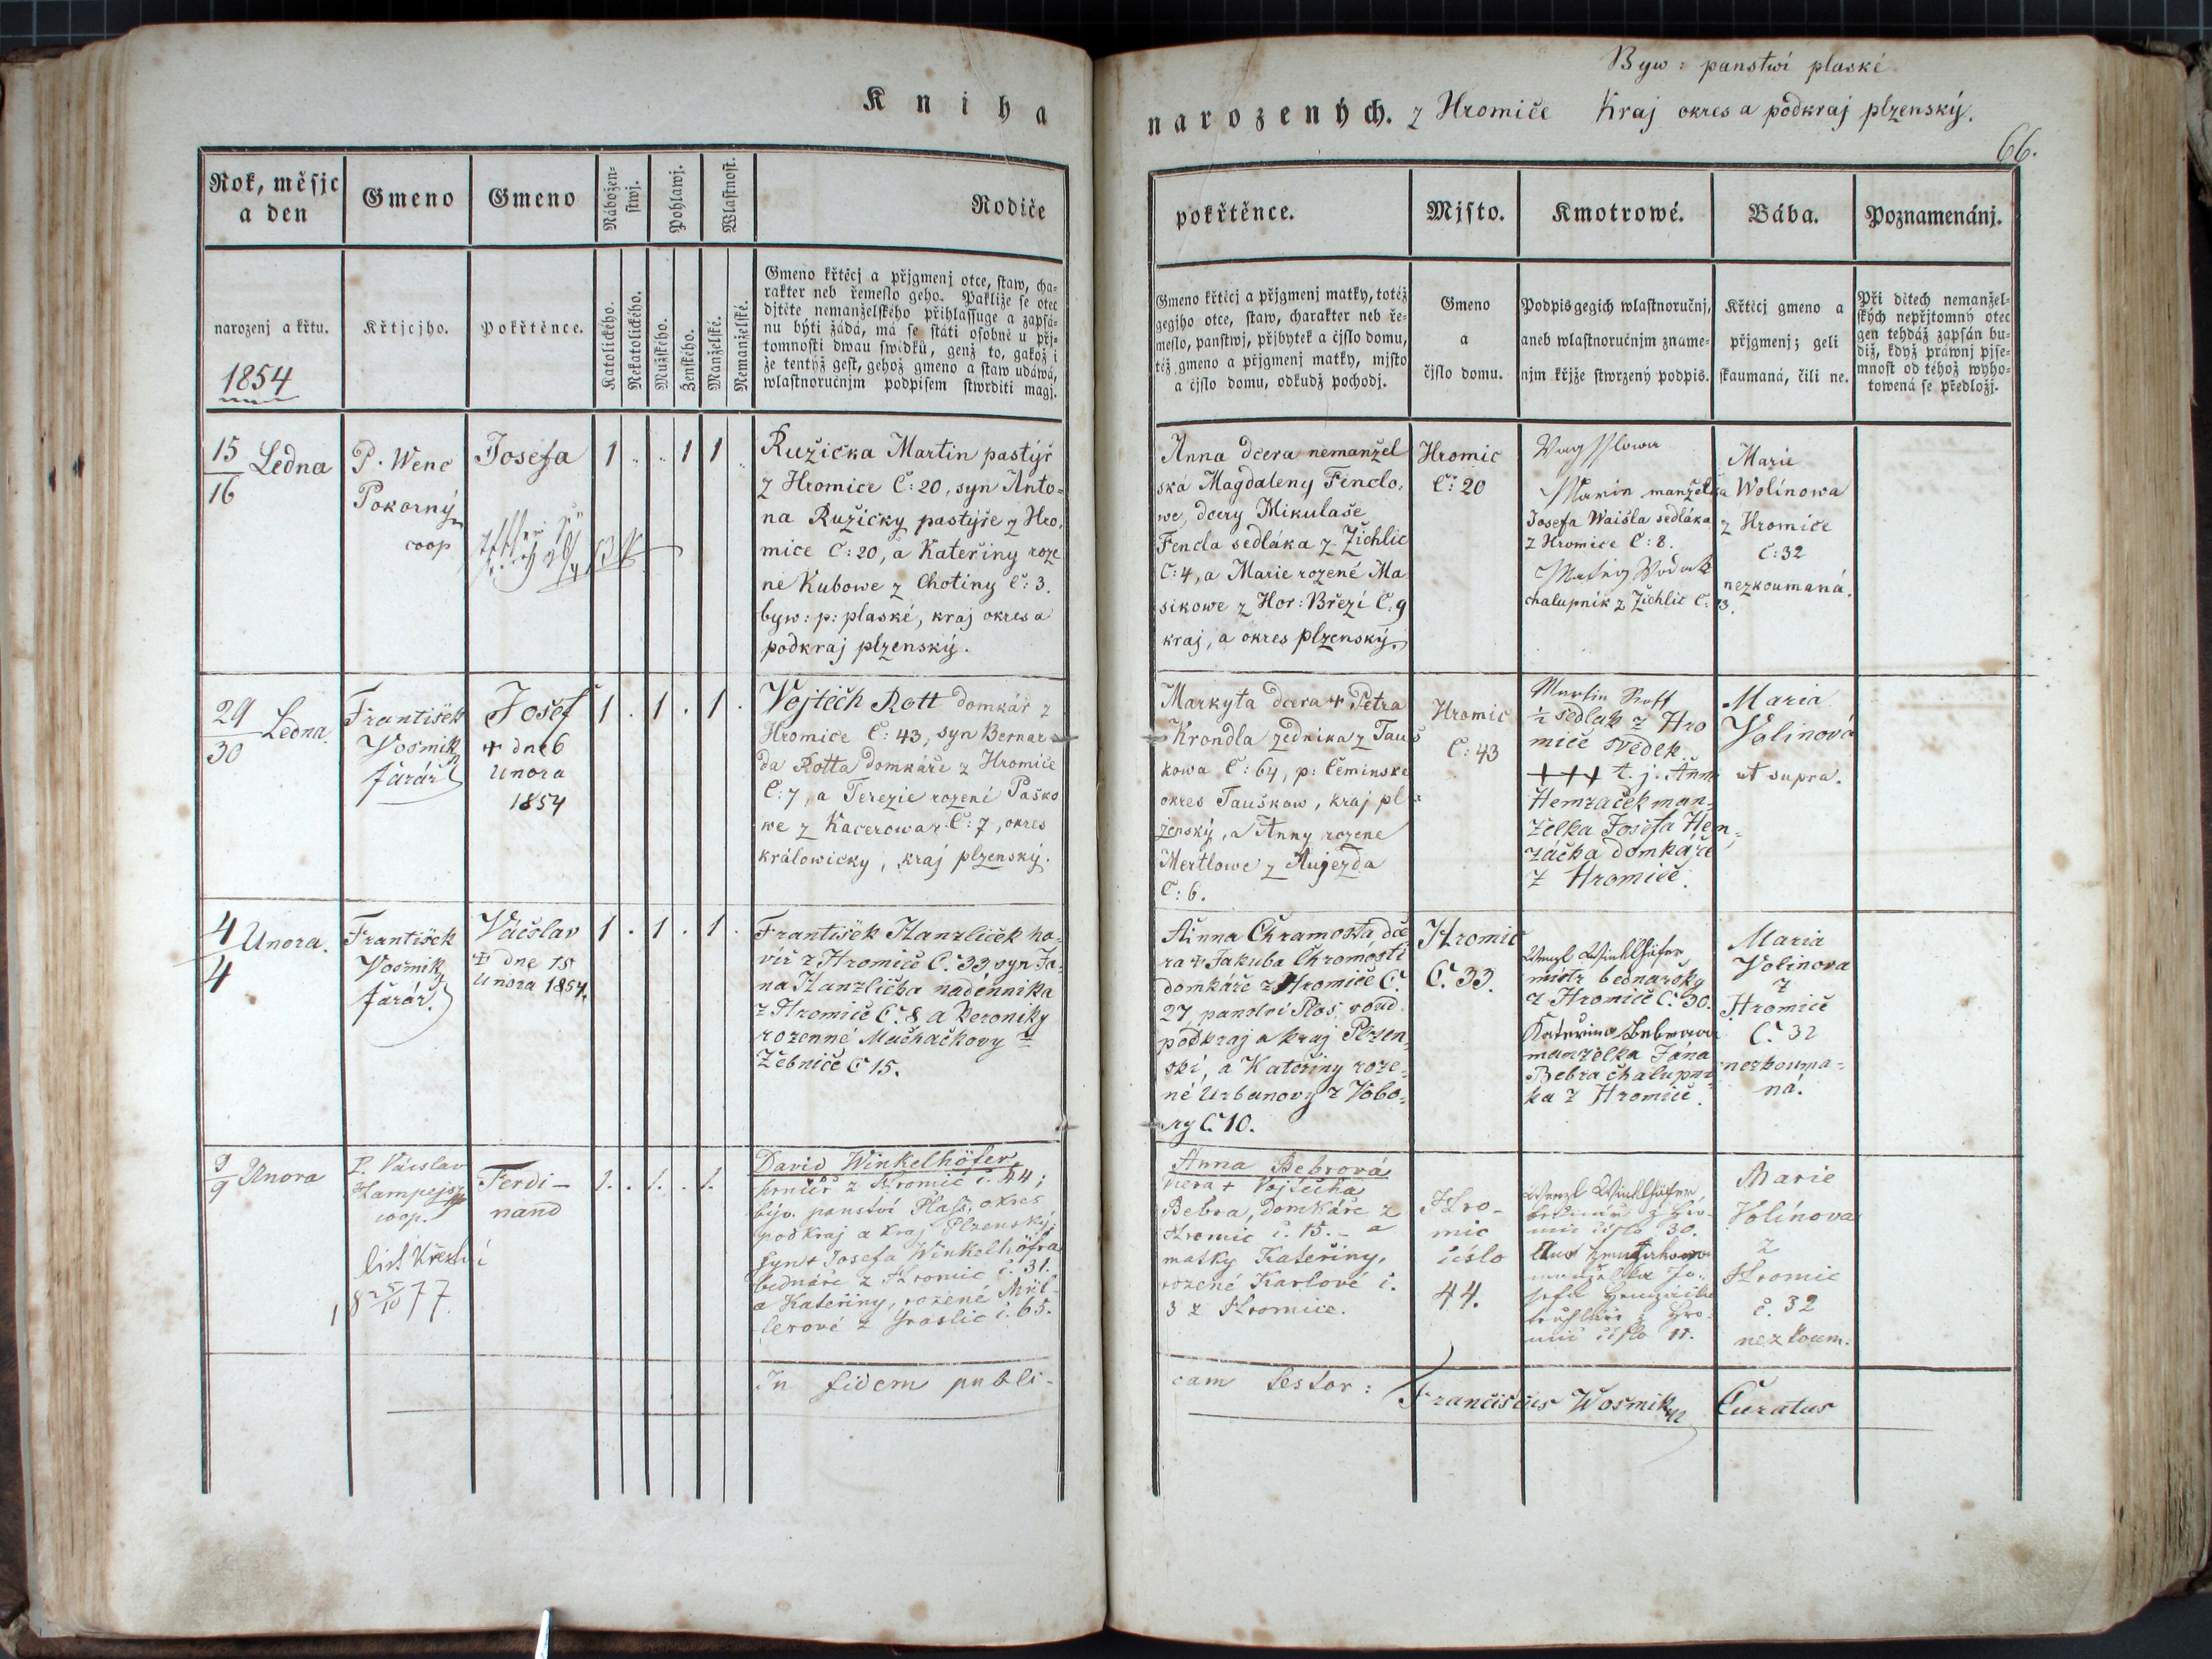 Kniha
narozených. z Hromiče Kraj okres a podkraj plzenský.
Byw: panstwí plaské
66.
Rok, měsjc
a den
Gmeno
Gmeno
Nábožen-
stwj.
Pohlawj.
Wlastnost.
Rodiče
narozenj a křtu.
1854
Křtjcjho.
Pokřtěnce.
Katolického.
Nekatolického.
Mužského.
Ženského.
Manželské.
Nemanželské.
Gmeno křtěcj a přjgmenj otce, staw, cha-
rakter neb řemeslo geho. Pakliže se otec
djtěte nemanželského přihlassuge a zapsá-
nu býti žádá, má se státi osobně u přj-
tomnosti dwau swědků, genž to, gakož i
že tentýž gest, gehož gmeno a staw udáwá,
wlastnoručnjm podpisem stwrditi magj.
pokřtěnce.
Mjsto.
Kmotrowé.
Bába.
Poznamenánj.
Gmeno křtěcj a přjgmenj matky, totéž
gegjho otce, staw, charakter neb ře-
meslo, panstwj, přjbytek a čjslo domu,
též gmeno a přjgmenj matky, mjsto
a čjslo domu, odkudž pochodj.
Gmeno
a
čjslo domu.
Podpis gegich wlastnoručnj,
aneb wlastnoručnjm zname-
njm křjže stwrzený podpis.
Křtěcj gmeno a
přjgmenj; geli
skaumaná, čili ne.
Při dětech nemanžel-
ských nepřjtomný otec
gen tehdáž zapsán bu-
diž, když práwnj pjse-
mnost od téhož wyho-
towená se předložj.
15 Ledna
16
P. Wenc
Pokorný
coop
Josefa
1 . . 1 1 .
Ružička Martin pastýř
z Hromice Č: 20, syn Anto-
na Ružičky pastýře z Hro-
mice Č: 20, a Kateřiny roze
né Kubowe z Chotiny Č: 3.
byw: p: plaské, kraj okres a
podkraj plzenský.
Anna dcera nemanžel
ská Magdaleny Finclo-
we, dcery Mikulaše
Fencla sedláka z Žichlic
Č: 4, a Marie rozené Ma
sikowe z Hor: Březí Č: 9
kraj, a okres plzenský.
Hromic
Č: 20
manželka
Josefa Waišla sedláka
z Hromice Č: 8.
chalupník z Žichlic Č: 13.
Marie
Wolínowa
z Hromiče
Č: 32
nezkoumaná.
29 Ledna
30
František
Wosmik
farář
Josef
+ dne 6
Unora
1854
1 . 1 . 1 .
Vojtěch Rott domkář z
Hromice Č: 43, syn Bernar
da Rotta domkáře z Hromiče
Č: 7, a Terezie rozeni Pasko
we z Kacerowa z Č: 7, okres
králowicky, kraj plzenský.
Markyta dcera + Petra
Krondla zednika z Tauš
kowa Č: 64, p: Čeminske
okres Tauškow, kraj pl
zenský, a Anny rozene
Mertlowe z Aujezda
Č: 6.
Hromic
Č: 43
Martin Rott
½ sedlak z Hro
miče svědek
+++ t. j. Anna
Hemzaček man-
želka Josefa Hem-
záčka domkáře
z Hromiče.
Maria
Volinová
ut supra.
4 Unora.
4
František
Wosmik
farář.
Václav
+ dne 15
Unora 1854.
1 . 1 . 1 .
František Hanzliček ho-
víř z Hromiče Č. 33 syn Ja-
na Hanzlička nadennika
z Hromiče Č. 8 a Veroniky
rozenné Mačháčkovy z
Žebniče Č 15.
Anna Chramosta dce
ra + Jakuba Chromosti
domkáře z Hromiče Č.
27, panství Plas, soud.
podkraj a kraj Plzen-
ski, a Kateřiny roze-
né Urbanovy z Vobo-
ry Č 10.
Hromic
Č. 33.
Wenzl Winklhöfer
mistr bednařsky
z Hromiče Č. 30.
Kateřina Bebrowa
manželka Jána
Bebra chalupni-
ka z Hromiče.
Maria
Volinova
z
Hromič
Č. 32
nezkouma-
ná.
9 Unora
9
P. Václav
Hampejs
coop.
list křestní
18 25/10 77.
Ferdi-
nand
1. . 1. . 1.
David Winkelhöfer
hrnčíř z Hromic č. 44;
býv. panství Plass, okres
podkraj a kraj Plzenský,
syn + Josefa Winkelhöfra
bednáře z Hromic č. 31.
a Kateřiny, rozené Mül-
lerové z Graslic č. 65.
Anna Bebrová
dcera + Vojtěcha
Bebra, domkáře z
Hromic č. 15. - a
matky Kateřiny,
rozené Karlové č.
3 z Hromice.
Hro-
mic
číslo
44.
Wenzl Winklhöfer,
bednář z Hro-
mic číslo 30.
manželka Jo-
sefa Hemzáčka
truhláře z Hro-
mic číslo 11.
Marie
Volínova
z
Hromic
č. 32
nezkoum.
In fidem publi-
cam testor: Franciscus Wosmik Curatus